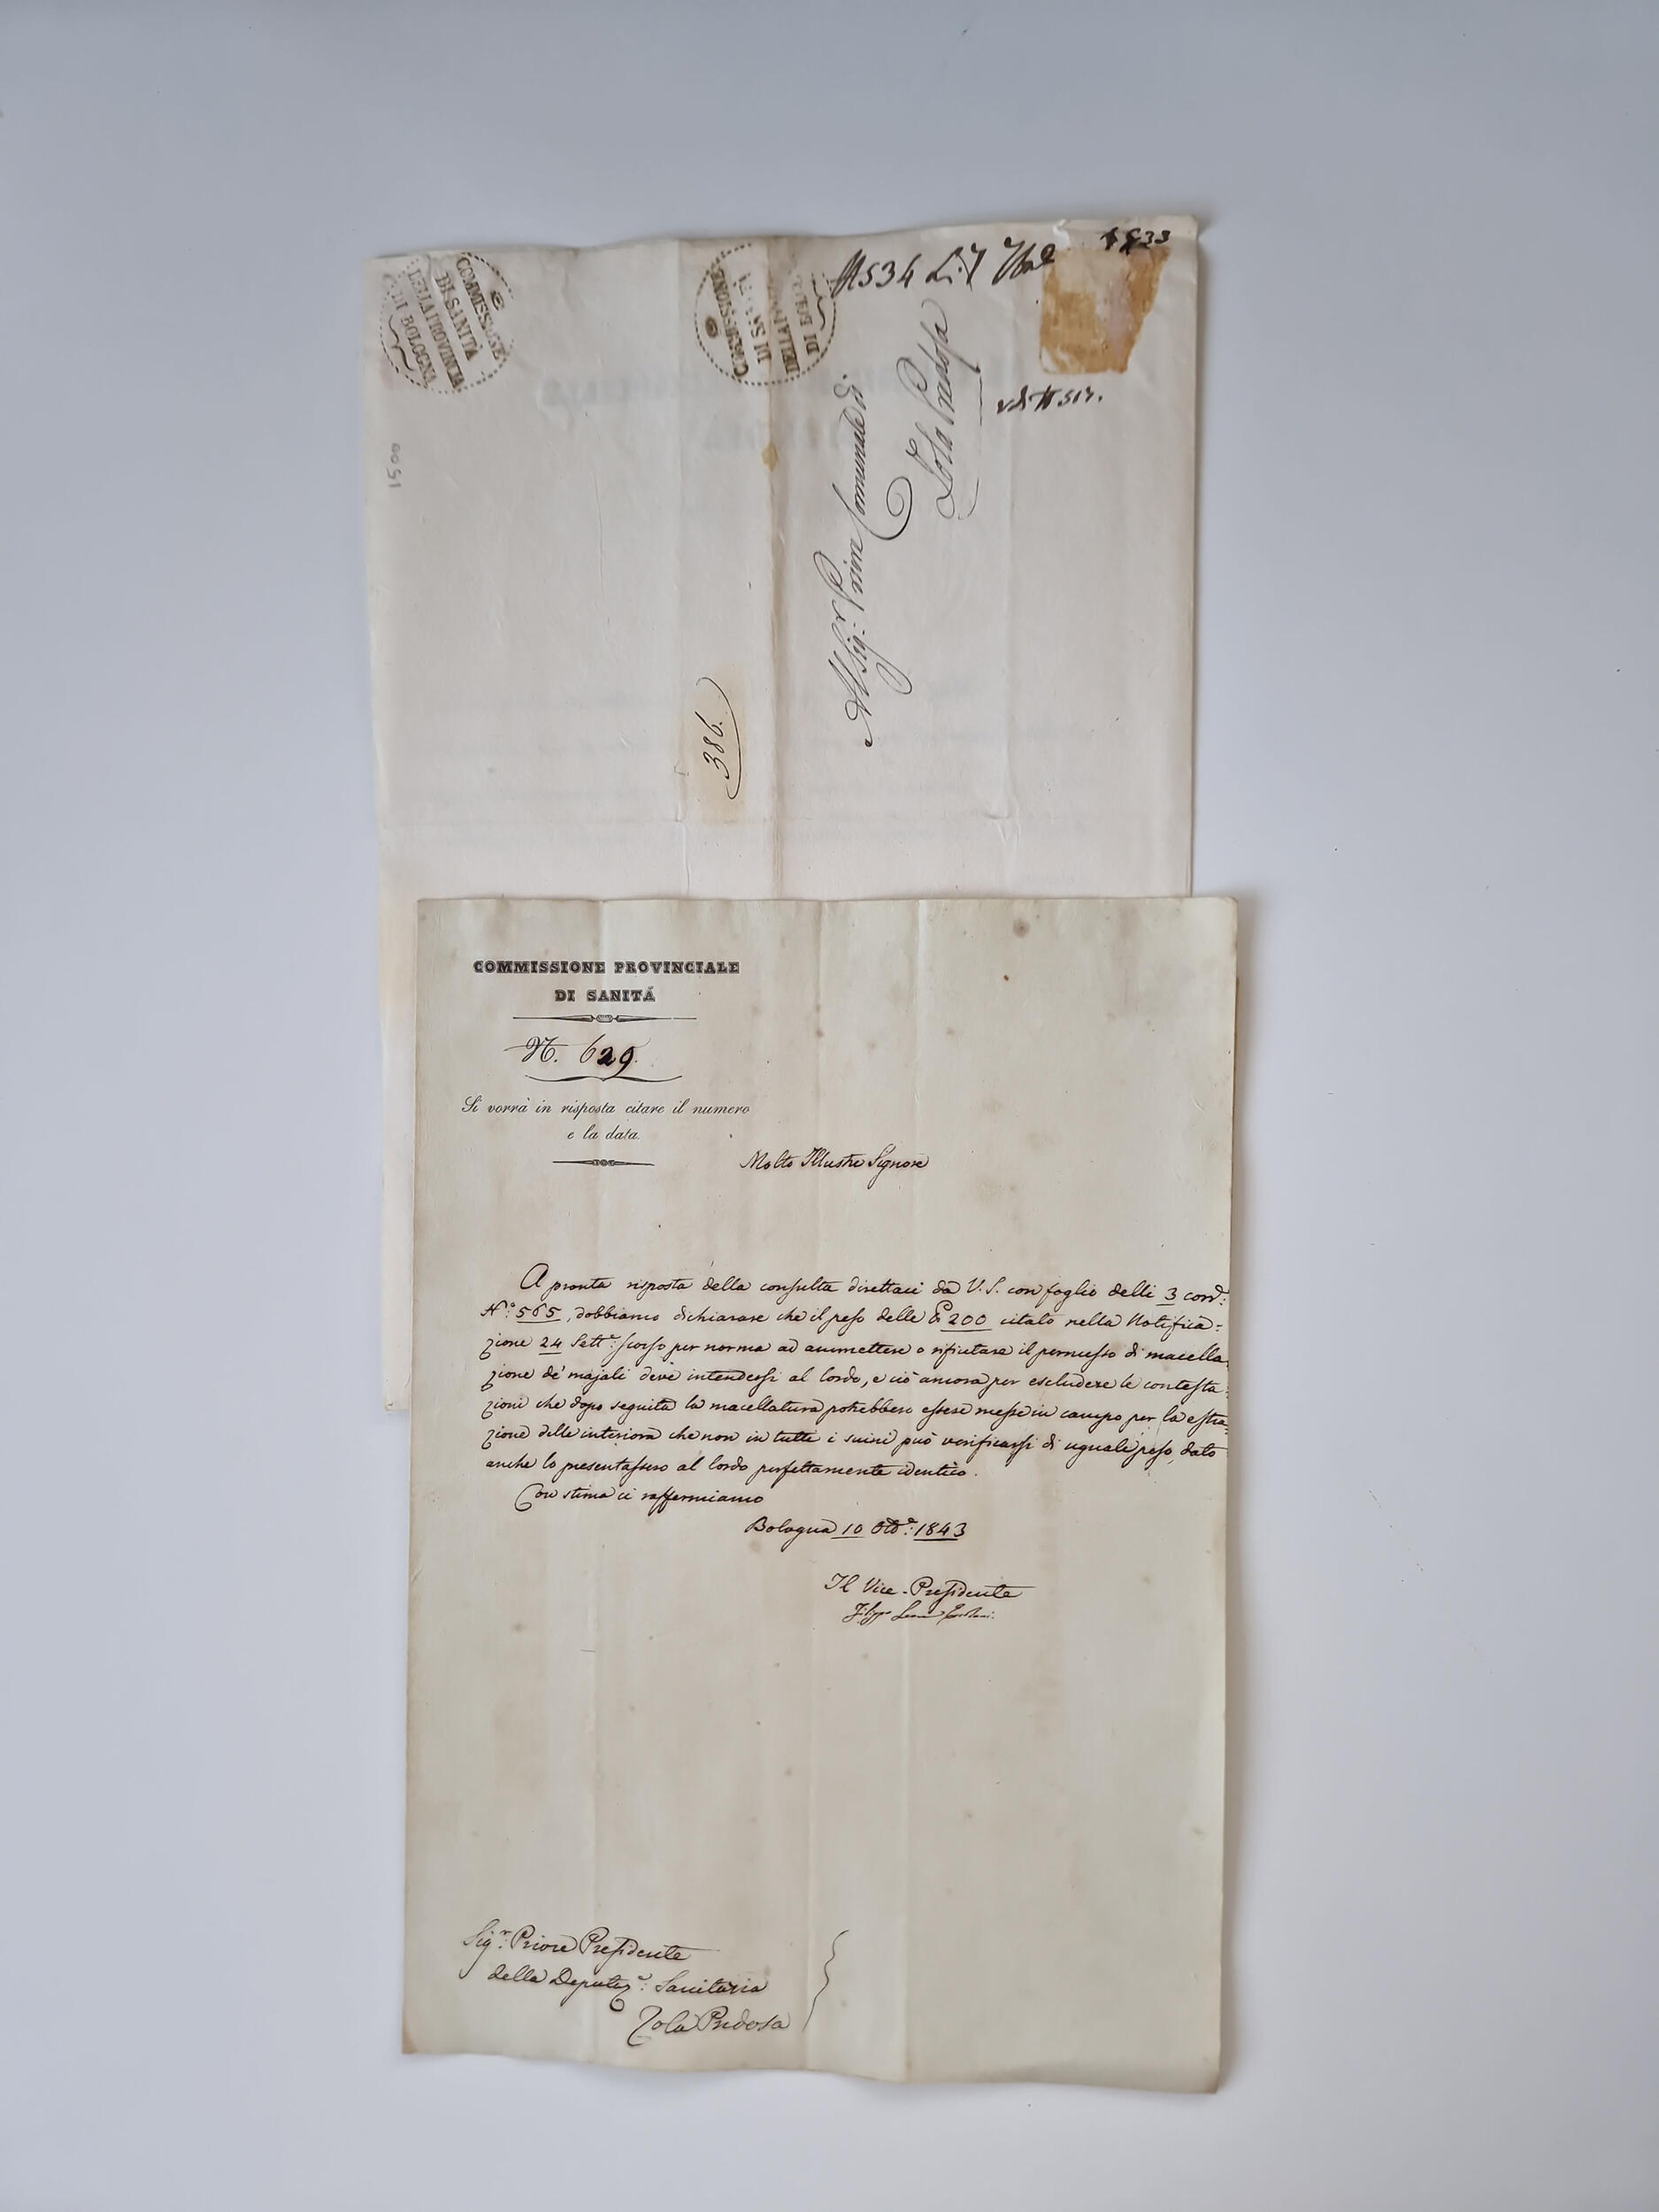 COMMISSIONE
DI SANITÀ
DELLA PROVINCIA
DI BOLOGNA
COMMISSIONE
DI
DI
1833
1500
Al Sig.r Priore Comunale di
Zola Predosa
386.
COMMISSIONE PROVINCIALE
DI SANITÁ
N. 629.
Si vorrà in risposta citare il numero
e la data.
Molto Illustre Signore
A pronta risposta della consulta direttaci da V. S. con foglio delli 3 corr.e
N.o 565, dobbiamo dichiarare che il peso delle 200 citato nella Notifica=
zione 24 Sett.e scorso per norma ad ammettere o rifiutare il permesso di macella=
zione de' majali deve intendersi al lordo, e ciò ancora per escludere le contesta=
zioni che dopo seguita la macellatura potrebbero essere messe in campo per la estra=
zione delle interiora che non in tutti i suini può verificarsi di uguale peso, dato
anche lo presentassero al lordo perfettamente identico.
Con stima ci raffermiamo
Bologna 10 Ott.e 1843
Il Vice-Presidente
Sig.r Priore Presidente
della Deputaz.e Sanitaria
Zola Predosa